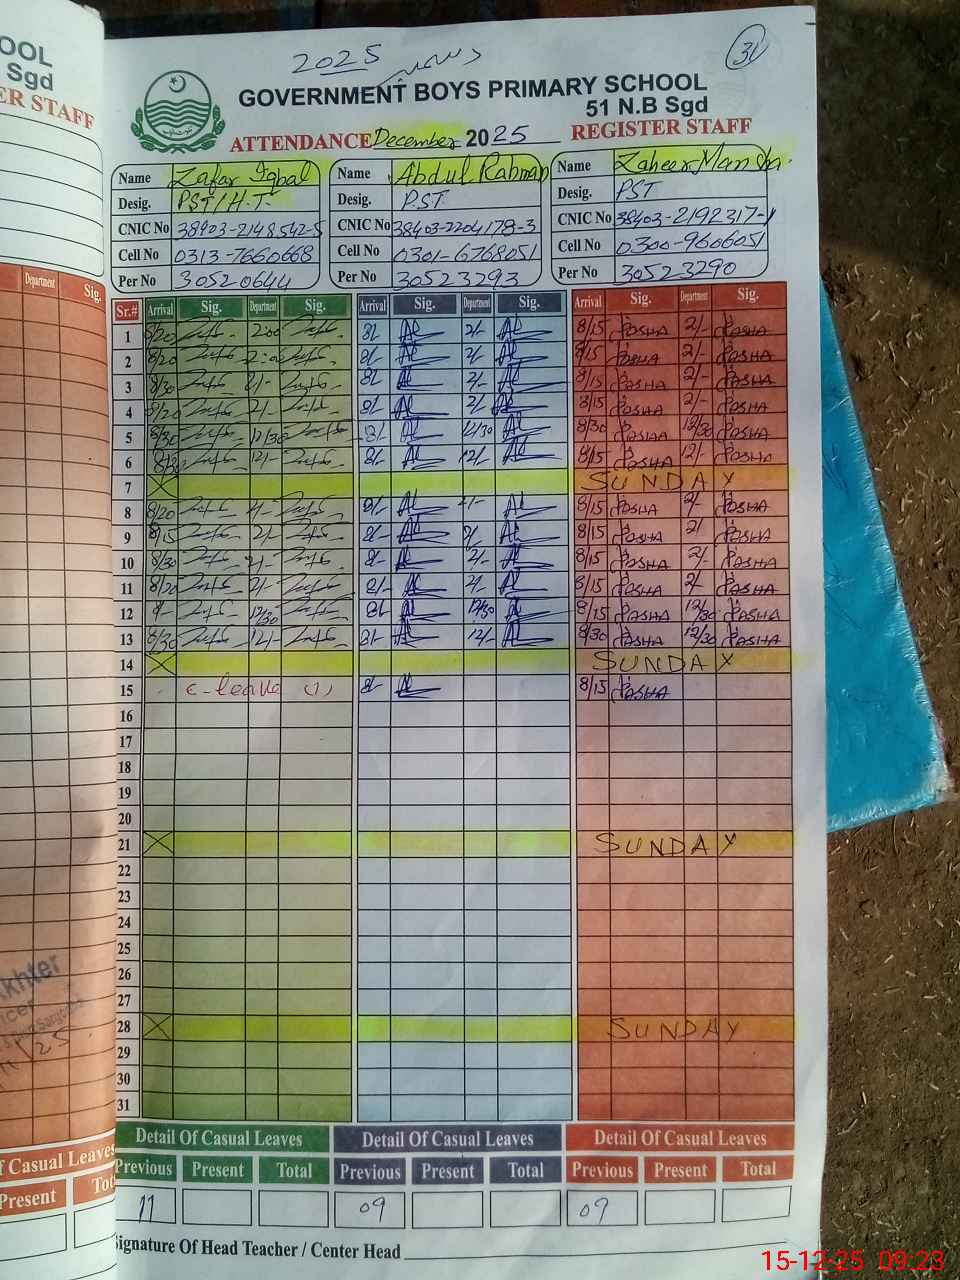 2025 دسمبر
31
GOVERNMENT BOYS PRIMARY SCHOOL
51 N.B Sgd
ATTENDANCE December 2025 REGISTER STAFF
Name Zafar Iqbal Name Abdul Rahman Name Zaheer
Desig. PST/H.T Desig. PST Desig. PST
CNIC No 38403-2148542-5 CNIC No 38403-2204178-3 CNIC No 38403-2192317-1
Cell No 0313-7660668 Cell No 0301-6768051 Cell No 0300-9606051
Per No 30520644 Per No 30523293 Per No 30523290
Sr.# Arrival Sig. Department Sig. Arrival Sig. Department Sig. Arrival Sig. Department Sig.
1 8/20 2:00 8/- 2/- 8/15 PASHA 2/- PASHA
2 8/20 2:00 8/- 2/- 8/15 PASHA 2/- PASHA
3 8/30 2/- 8/- 2/- 8/15 PASHA 2/- PASHA
4 8/20 2/- 8/- 2/- 8/15 PASHA 2/- PASHA
5 8/30 12/30 8/- 12/30 8/30 PASHA 12/30 PASHA
6 12/- 8/- 12/- 8/15 PASHA 12/- PASHA
7 SUNDAY
8 8/20 8/- 8/15 PASHA 2/- PASHA
9 8/15 2/- 8/- 2/- 8/15 PASHA 2/ PASHA
10 8/30 2/- 8/- 2/- 8/15 PASHA 2/- PASHA
11 8/20 2/- 8/- 2/- 8/15 PASHA 2/- PASHA
12 12/30 8/- 12/30 8/15 PASHA 12/30 PASHA
13 8/30 12/- 8/- 12/- 8/30 PASHA 12/30 PASHA
14 SUNDAY
15 C-leave (1) 8/- 8/15 PASHA
16
17
18
19
20
21 SUNDAY
22
23
24
25
26
27
28 SUNDAY
29
30
31
Detail Of Casual Leaves Detail Of Casual Leaves Detail Of Casual Leaves
Previous Present Total Previous Present Total Previous Present Total
11 09 09
Signature Of Head Teacher / Center Head
OOL
Sgd
ER STAFF
Department Sig.
khter
f Casual Leaves
Present Tot
15-12-25 09:23